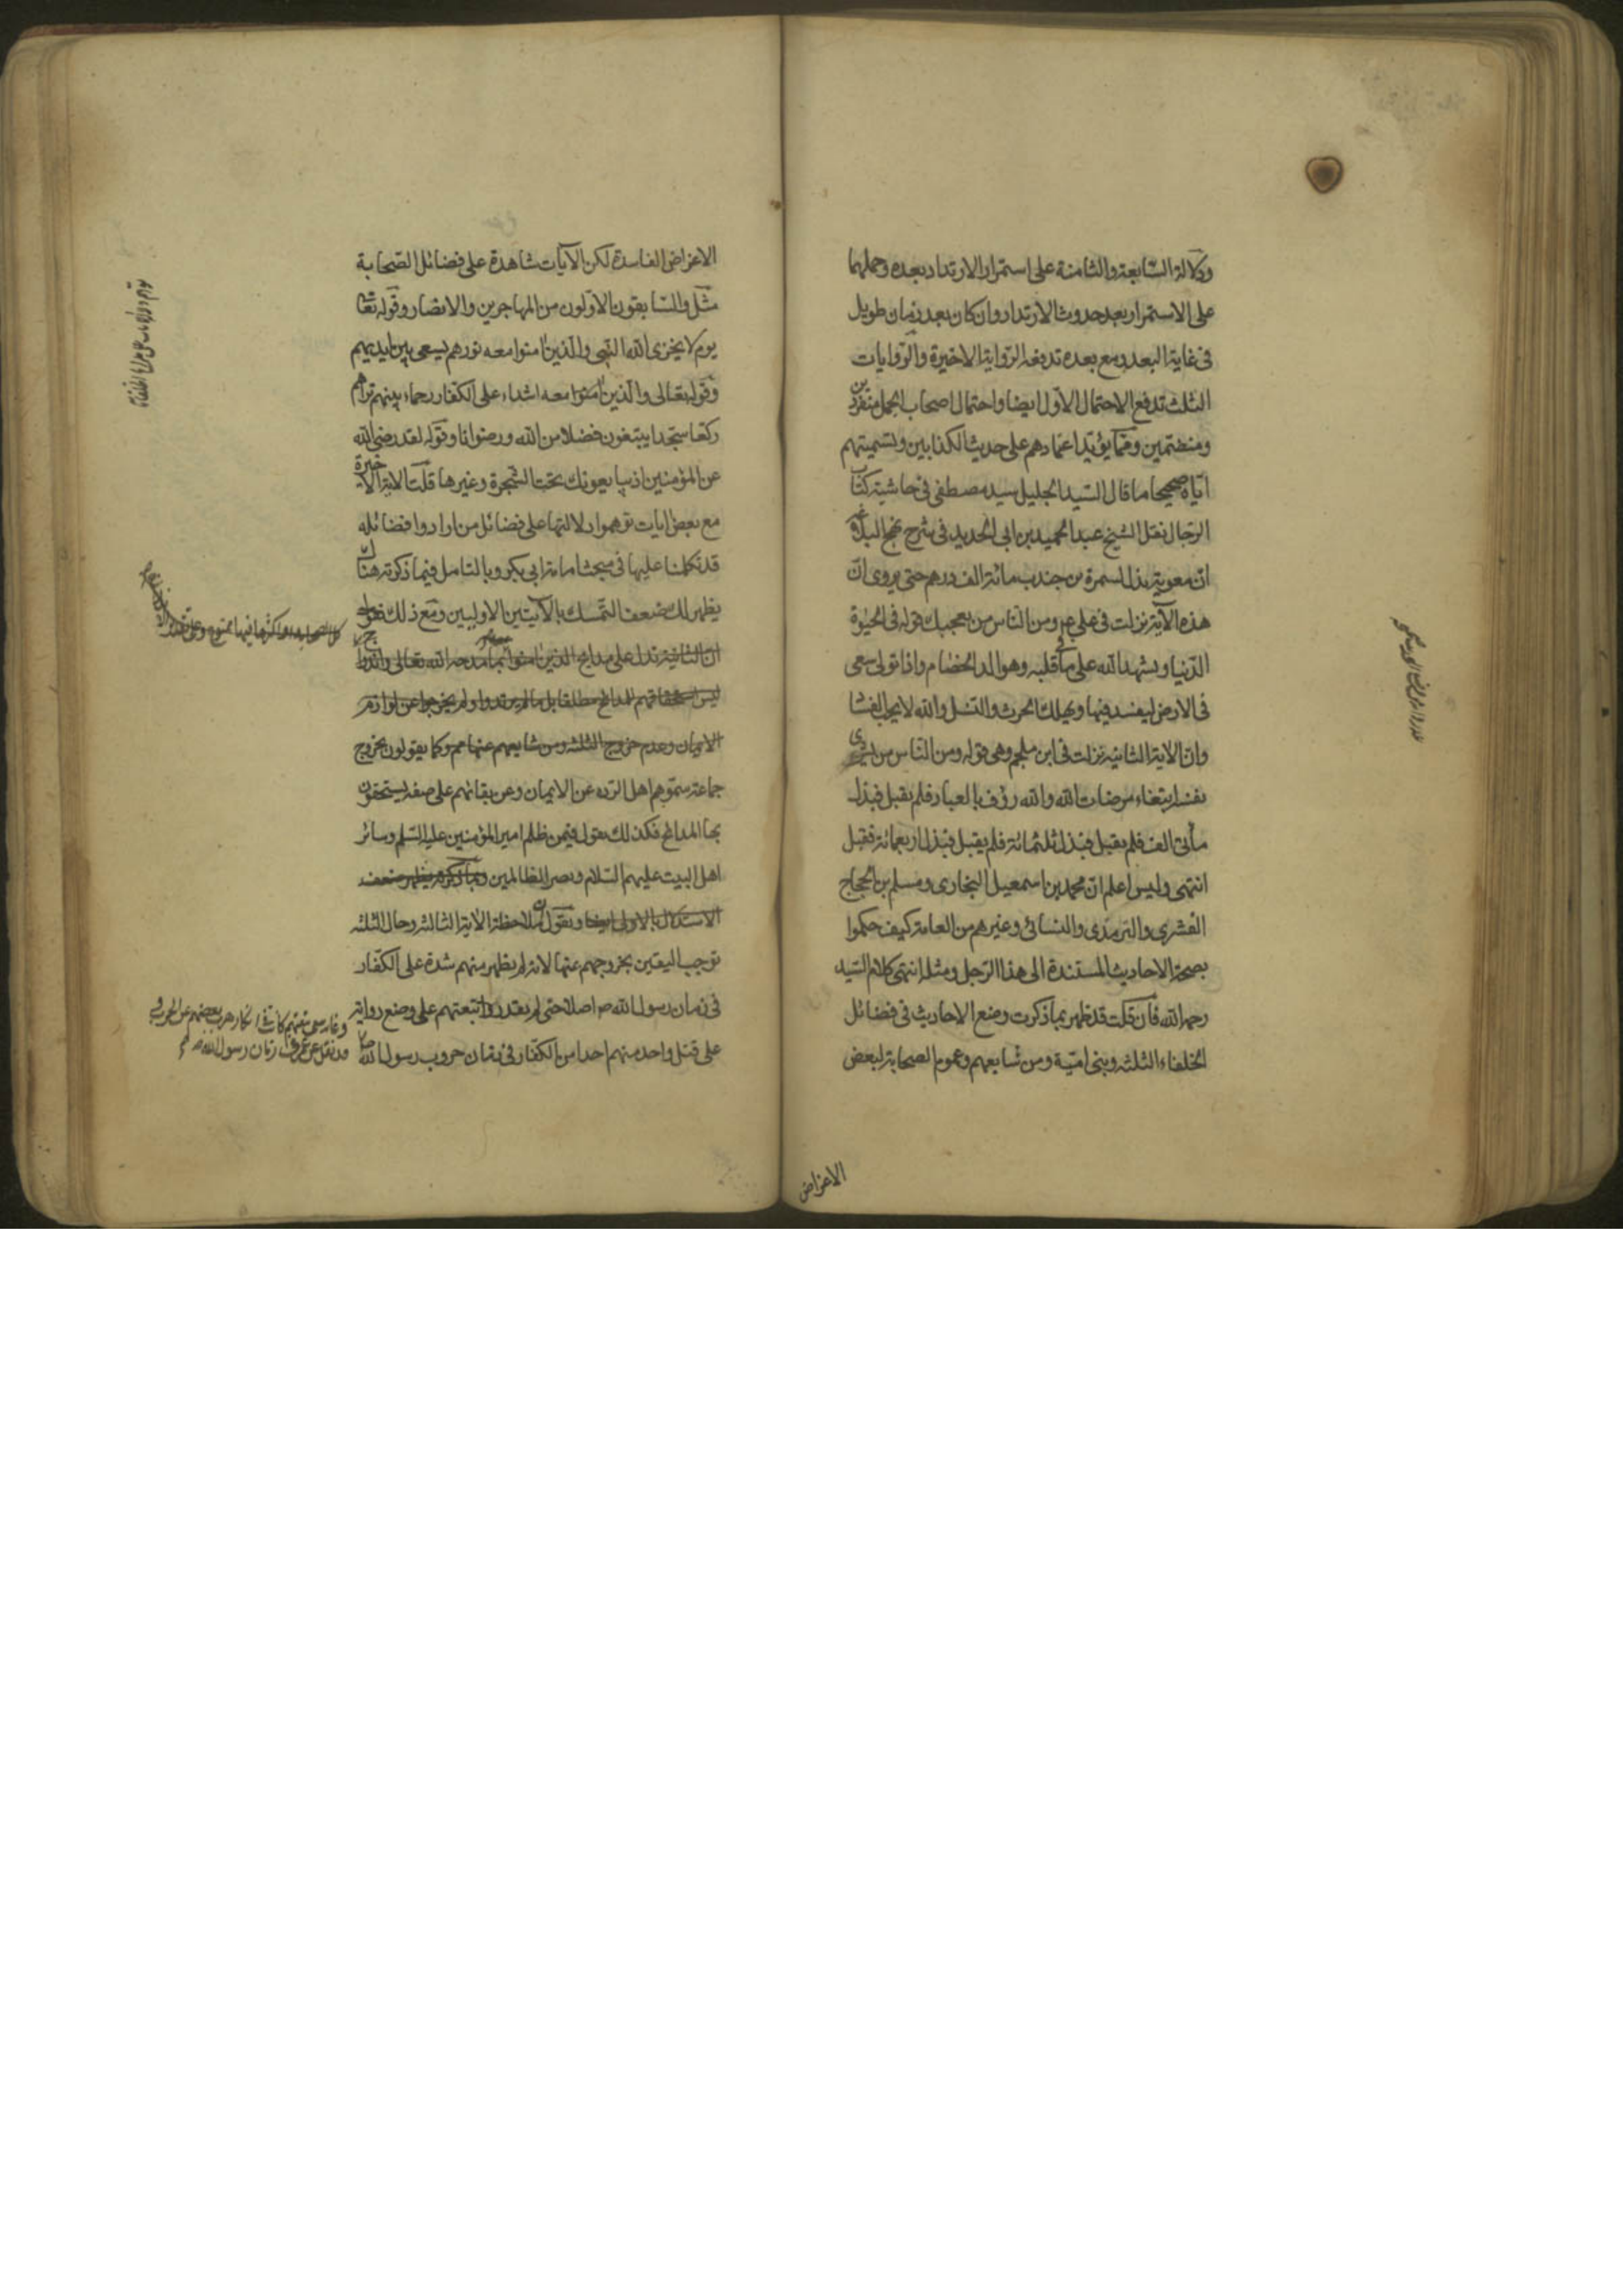 ودلالة السابعة والثامنة على استمرار الارتداد بعده وحملهما
على الاستمرار بعد حدوث الارتداد وان كان بعد زمان طويل
فى غاية البعد ومع بعده تدفعه الرواية الاخيرة والروايات
الثلث تدفع الاحتمال الاول ايضا واحتمال اصحاب الجمل منفردين
ومنضمين ومما يؤيد اعتمادهم على حديث الكذابين وتسميتهم
اياه صحيحا ما قال السيد الجليل سيد مصطفى فى حاشية كتاب
الرجال نقل الشيخ عبد الحميد بن ابى الحديد فى شرح نهج البلاغة
ان معوية بذل لسمرة بن جندب مائة الف درهم حتى يروى ان
هذه الآية نزلت فى على ع ومن الناس من يعجبك قوله فى الحيوة
الدنيا ويشهد الله على ما فى قلبه وهو الد الخصام واذا تولى سعى
فى الارض ليفسد فيها ويهلك الحرث والنسل والله لا يحب الفساد
وان الآية الثانية نزلت فى ابن ملجم وهى قوله ومن الناس من يشرى
نفسه ابتغاء مرضات الله والله رؤف بالعباد فلم يقبل فبذل
مأتى الف فلم يقبل فبذل ثلثمائة فلم يقبل فبذل اربعمائة فقبل
انتهى وليس اعلم ان محمد بن اسمعيل البخارى ومسلم بن الحجاج
القشرى والترمذى والنسائى وغيرهم من العامة كيف حكموا
بصحة الاحاديث المستندة الى هذا الرجل ومثله انتهى كلام السيد
رحمه الله فان قلت قد ظهر بما ذكرت وضع الاحاديث فى فضائل
الخلفاء الثلثة وبنى امية ومن شايعهم وعموم الصحابة لبعض
الاعراض
الاغراض الفاسدة لكن الآيات شاهدة على فضائل الصحابة
مثل والسابقون الاولون من المهاجرين والانصار وقوله تعا
يوم لا يخزى الله النبى والذين امنوا معه نورهم يسعى بين ايديهم
وقوله تعالى والذين امنوا معه اشداء على الكفار رحماء بينهم تراهم
ركعا سجدا يبتغون فضلا من الله ورضوانا وقوله لقد رضى الله
عن المؤمنين اذ يبايعونك تحت الشجرة وغيرها قلت الاية الاخيرة
مع بعض ايات توهموا دلالتها على فضائل من ارادوا فضائله
قد تكلمنا عليها فى مبحث امامة ابى بكر وبالتامل فيما ذكرته هناك
يظهر لك ضعف التمسك بالآيتين الاوليين ومع ذلك نقول
ان الثانية تدل على مدايح الذين امنوا بما مدحه الله تعالى
ليس استحقاقهم المدايح مطلقا بل ما لم يرتدوا ولم يخرجوا عن لوازم
الايمان وعدم خروج الثلثة ومن شايعهم عنها مم وكما يقولون بخروج
جماعة سموهم اهل الرده عن الايمان وعن بقائهم على صفة يستحقون
بها المدايح فكذلك نقول فيمن ظلم امير المؤمنين عليه السلم وسائر
اهل البيت عليهم السلام ونصر الظالمين وبما ذكرته يظهر ضعف
الاستدلال بالاولى ايضا ونقول ان ملاحظة الآية الثالثة وحال الثلثه
توجب اليقين بخروجهم عنها لانه لم يظهر منهم شدة على الكفار
فى زمان رسول الله ص اصلا حتى لم يقدر اتبعتهم على وضع رواية
على قتل واحد منهم احدا من الكفار فى زمان حروب رسول الله ص
زمان رسول الله ص